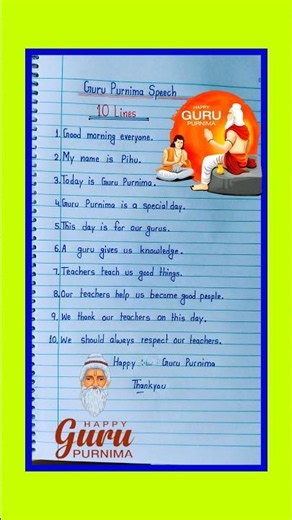 Guru Purnima Speech
10 Lines
HAPPY
GURU
PURNIMA
1. Good morning everyone.
2. My name is Pihu.
3. Today is Guru Purnima.
4. Guru Purnima is a special day.
5. This day is for our gurus.
6. A guru gives us knowledge.
7. Teachers teach us good things.
8. Our teachers help us become good people.
9. We thank our teachers on this day.
10. We should always respect our teachers.
Happy Guru Purnima
Thankyou
HAPPY
Guru
PURNIMA